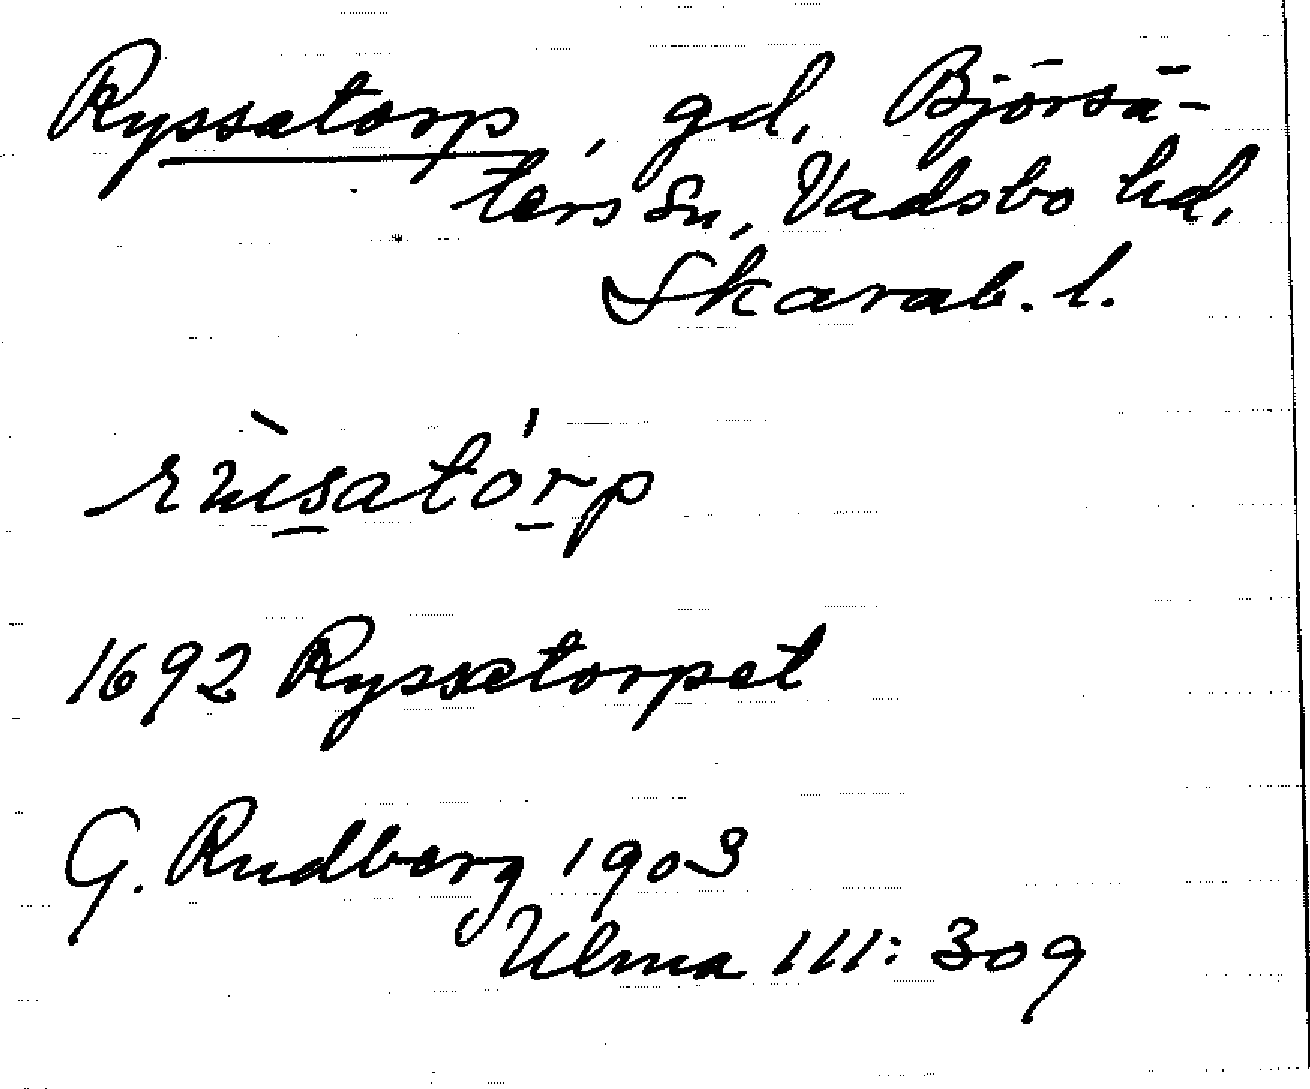 Ryssatorp, gd, Björsä-
ters sn, Vadsbo hd,
Skarab. l.
1692 Ryssetorpet
G. Rudberg 1903
Ulma 111: 309